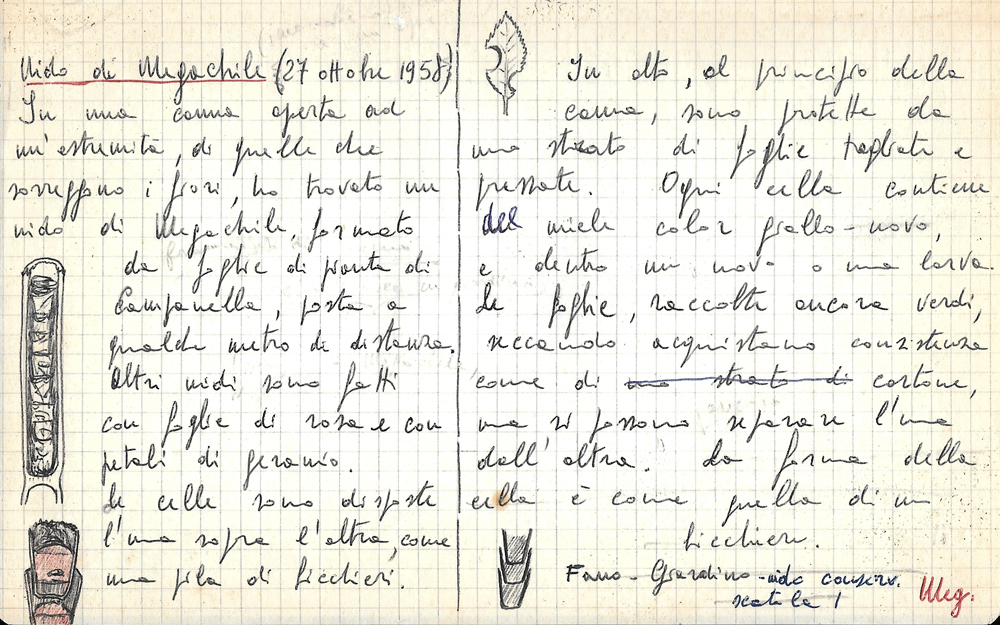 Nido di Megachile (27 ottobre 1958)
In una canna aperta ad
un'estremità, di quelle che
sorreggono i fiori, ho trovato un
nido di Megachile, formato
da foglie di pianta di
Campanella, posta a
qualche metro di distanza.
Altri nidi sono fatti
con foglie di rosa e con
petali di geranio.
Le celle sono disposte
l'una sopra l'altra, come
una pila di bicchieri.
In alto, al principio della
canna, sono protette da
uno strato di foglie tagliate e
pressate. Ogni cella contiene
del miele color giallo-uovo,
e dentro un uovo o una larva.
Le foglie, raccolte ancora verdi,
seccando acquistano consistenza
come di uno strato di cartone,
ma si possono separare l'una
dall'altra. La forma della
cella è come quella di un
bicchiere.
Fano - Giardino - nido conserv.
scatola 1
Meg.